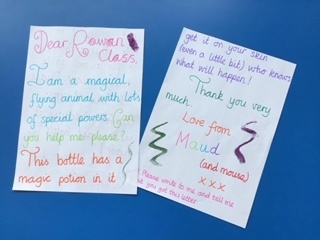 Dear Rowan
Class,
I am a magical,
flying animal with lots
of special powers. Can
you help me please?
This bottle has a
magic potion in it
get it on your skin
(even a little bit) who knows
what will happen!
Thank you very
much.
Love from
Maud
(and mouse)
x x x
Please write to me and tell me
you got this letter